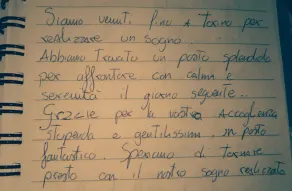 Siamo venuti fino a Torino per
realizzare un sogno.
Abbiamo trovato un posto splendido
per affrontare con calma e
serenità il giorno seguente.
Grazie per la vostra accoglienza
stupenda e gentilissima, un posto
fantastico. Speriamo di tornare
presto con il nostro sogno realizzato